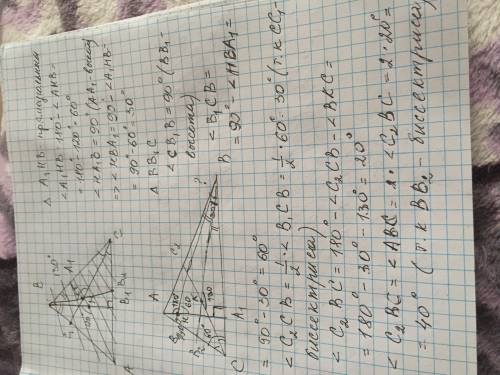 △ A₁HB - прямоугольный
∠A₁HB = 180° - ∠AHB =
= 180° - 120° = 60°
∠HA₁B = 90° (AA₁ - высота)
=> ∠HBA₁ = 90° - ∠A₁HB =
= 90° - 60° = 30°
△ BB₁C
∠CB₁B = 90° (BB₁ -
высота)
∠B₁CB =
= 90° - ∠HBA₁ =
= 90° - 30° = 60°
∠C₂CB = 1/2 · ∠B₁CB = 1/2 · 60° = 30° (т.к CC₂ -
биссектриса)
∠C₂BC = 180° - ∠C₂CB - ∠BKC =
= 180° - 30° - 130° = 20°
∠C₂BC = ∠ABC = 2 · ∠C₂BC = 2 · 20° =
= 40° (т.к BB₂ - биссектриса)
B
120°
A₁
C
B₁
B₂
A
A
C₂
B₂
A₁
C
B
?